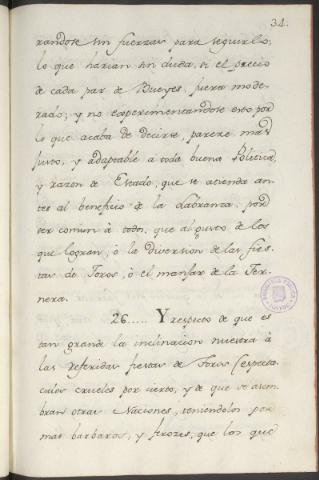 34.
randose sin fuerzas para seguirlo;
lo que harian sin duda, si el precio
de cada par de Bueyes, fuera mode-
rado; y no experimentandose esto por
lo que acaba de decirse, parece mas
justo, y adaptable à toda buena Politica,
y razon de Estado, que se atienda an-
tes al beneficio de la labranza, por
ser comun à todos, que al gusto de los
que logran, ò la Diversion de las fies-
tas de Toros, ò el manjar de la Ter-
nera.
26..... Y respecto de que es
tan grande la inclinacion nuestra à
las referidas fiestas de Toros (especta-
culos crueles por cierto, y de que se asom-
bran otras Naciones, teniendolos por
mas barbaros, y feroces, que los que